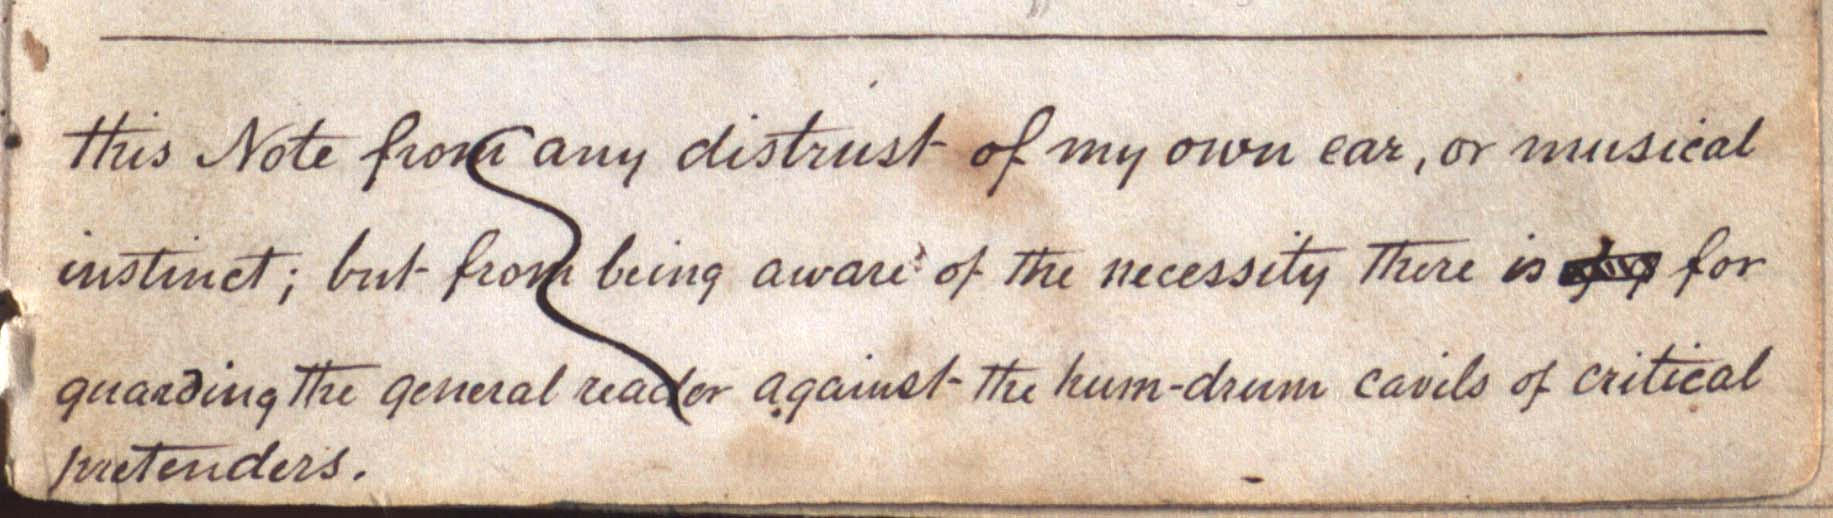 this Note from any distrust of my own ear, or musical
instinct; but from being aware of the necessity there is for
guarding the general reader against the hum-drum cavils of critical
pretenders.